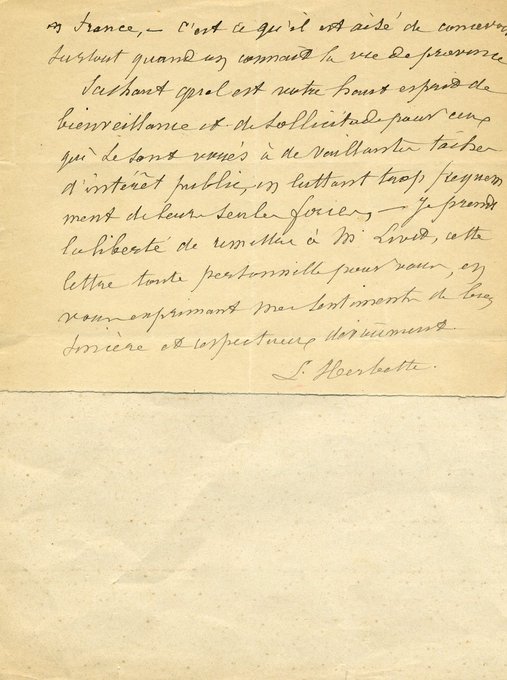 en France, — c'est ce qu'il est aisé de concevoir
surtout quand on connaît la vie de province
Sachant quel est votre haut esprit de
bienveillance et de sollicitude pour ceux
qui se sont voués à de vaillantes tâches
d'intérêt public, en luttant trop fréquem
ment de leurs seules forces, — je prends
la liberté de remettre à M. Livet, cette
lettre toute personnelle pour vous, en
vous exprimant mes sentiments de bien
sincère et respectueux dévouement.
L. Herbette.